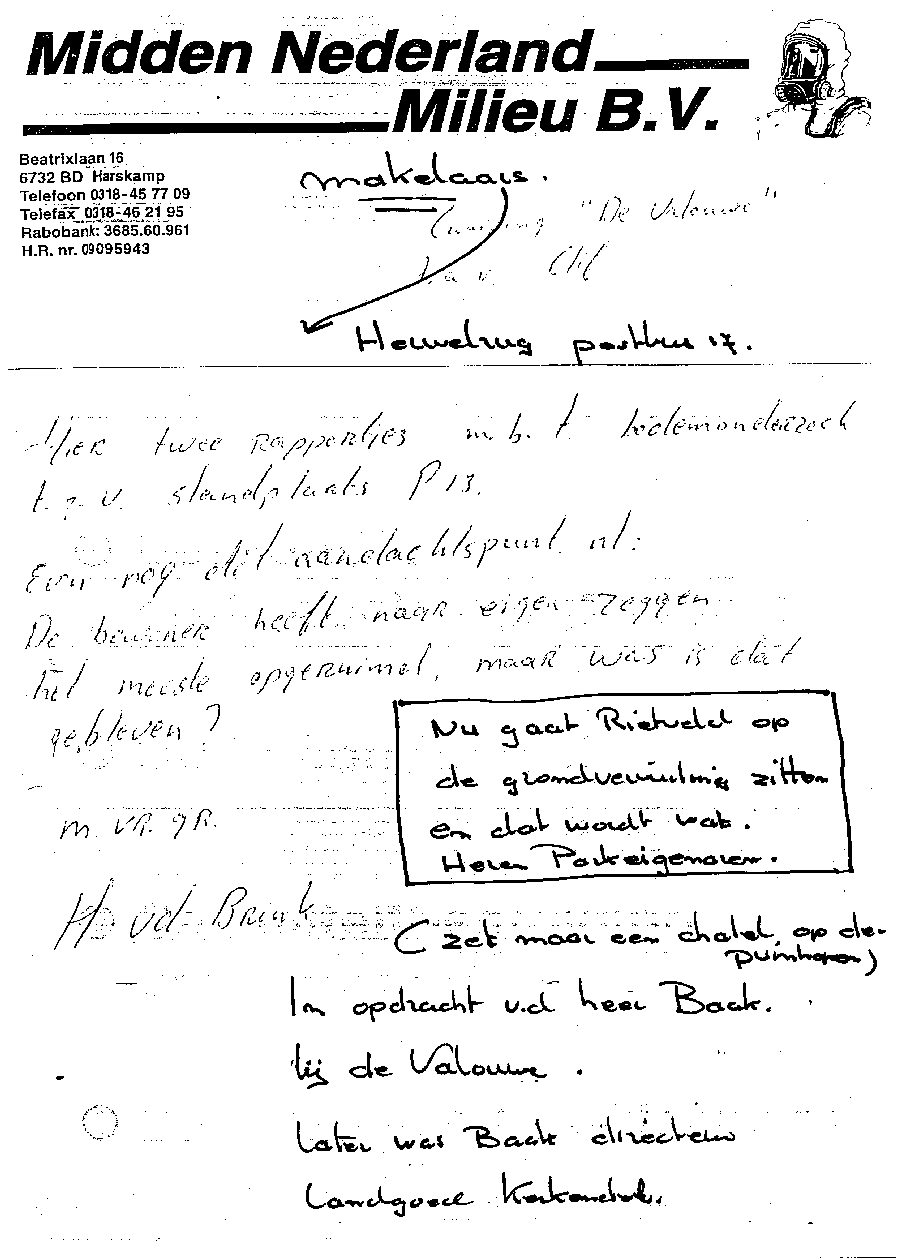 Midden Nederland
Milieu B.V.
Beatrixlaan 16
6732 BD Harskamp
Telefoon 0318-45 77 09
Telefax 0318-46 21 95
Rabobank: 3685.60.961
H.R. nr. 09095943
makelaars.
"De Valouwe"
t.a.v.
Heuvelrug postbus 17.
Hier twee rapportjes m.b.t. bodemonderzoek
t.p.v. standplaats P 13.
Even nog dit aandachtspunt nl:
De bewoner heeft naar eigen zeggen
het meeste opgeruimd, maar was is dat
gebleven?
m. vr. gr.
H vd Brink
Nu gaat Rietveld op
de grondvervuiling zitten
en dat wordt wat.
Heren Parkeigenaren.
(zet maar een chalet, op de
puinhopen)
In opdracht v.d heer Baak.
bij de Valouwe.
Later was Baak directeur
Landgoed